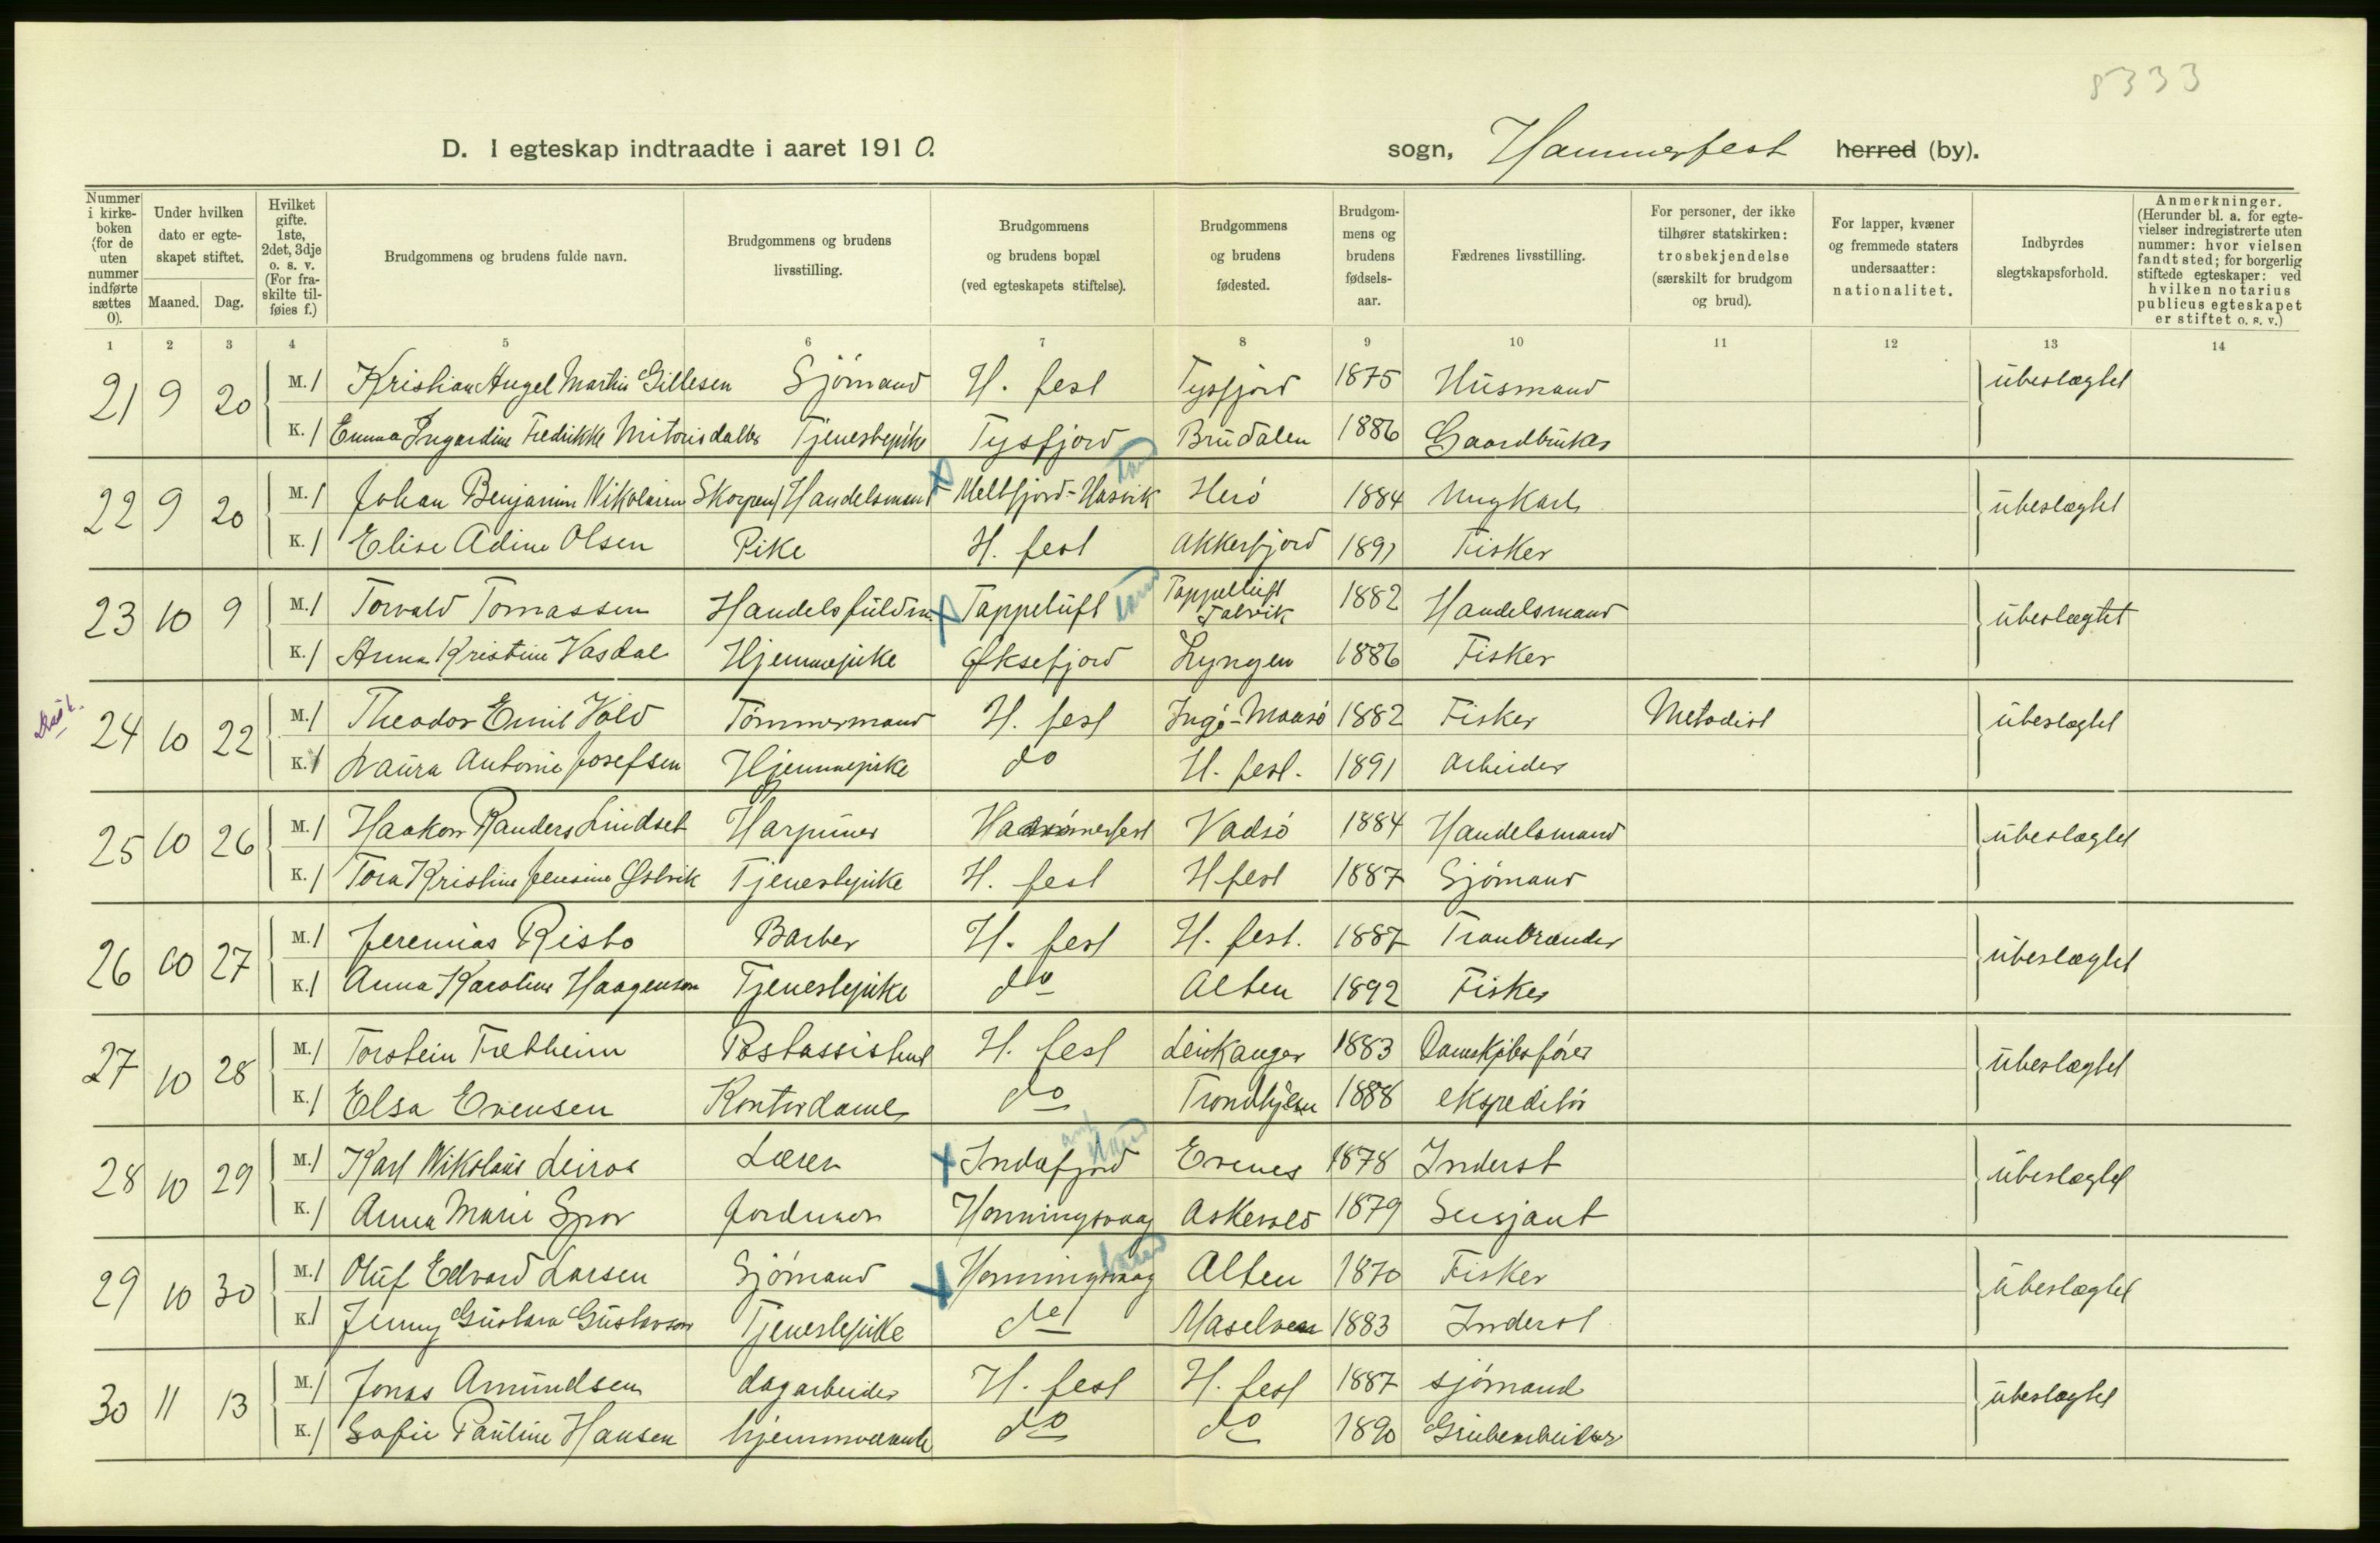 8333
D. I egteskap indtraadte i aaret 1910. sogn, Hammerfest herred (by).
Nummer i kirkeboken (for de uten nummer indførte sættes 0). Under hvilken dato er egteskapet stiftet. Maaned. Dag. Hvilket gifte. 1ste, 2det, 3dje o. s. v. (For fraskilte tilføies f.) Brudgommens og brudens fulde navn. Brudgommens og brudens livsstilling. Brudgommens og brudens bopæl (ved egteskapets stiftelse). Brudgommens og brudens fødested. Brudgommens og brudens fødselsaar. Fædrenes livsstilling. For personer, der ikke tilhører statskirken: trosbekjendelse (særskilt for brudgom og brud). For lapper, kvæner og fremmede staters undersaatter: nationalitet. Indbyrdes slegtskapsforhold. Anmerkninger. (Herunder bl. a. for egtevielser indregistrerte uten nummer: hvor vielsen fandt sted; for borgerlig stiftede egteskaper: ved hvilken notarius publicus egteskapet er stiftet o. s. v.)
1 2 3 4 5 6 7 8 9 10 11 12 13 14
21 9 20 M. 1 Kristian Angel Martin Gillesen Sjömand H. fest Tysfjord 1875 Husmand ubeslægtet
K. 1 Emma Ingardine Fredrikke Tjenestepike Tysfjord Brudalen 1886 Gaardbruker
22 9 20 M. 1 Johan Benjamin Nikolaisen Skorpen Handelsmand Meltfjord-Hasvik Herö 1884 Ungkarl ubeslægtet
K. 1 Elise Adine Olsen Pike H. fest Akkerfjord 1891 Fisker
23 10 9 M. 1 Torvald Tomassen Handelsfuldm. Tappeluft Tappeluft Talvik 1882 Handelsmand ubeslægtet
K. 1 Anna Kristine Vasdal Hjemmepike Øksefjord Lyngen 1886 Fisker
24 10 22 M. 1 Theodor Emil Vold Tömmermand H. fest Ingö-Maasö 1882 Fisker Metodist ubeslægtet
K. 1 Laura Antonie Josefsen Hjemmepike do H. fest. 1891 Arbeider
25 10 26 M. 1 Haakon Randers Lindset Harpuner Hammerfest Vadsö 1884 Handelsmand ubeslægtet
K. 1 Tora Kristine Jensine Østvik Tjenestepike H. fest H fest 1887 Sjömand
26 10 27 M. 1 Jeremias Risto Barber H. fest H. fest. 1887 Tranbrænder ubeslægtet
K. 1 Anna Karoline Haagensen Tjenestepike do Alten 1892 Fisker
27 10 28 M. 1 Torstein Fretheim Postassistent H. fest Leikanger 1883 Damskibsförer ubeslægtet
K. 1 Elsa Evensen Kontordame do Trondhjem 1888 ekspeditör
28 10 29 M. 1 Karl Nikolaus Leiros Lærer Indrefjord Evenes 1878 Inderst ubeslægtet
K. 1 Anna Marie Spor Jordmor Honningsvaag Askevold 1879 Sersjant
29 10 30 M. 1 Oluf Edvard Larsen Sjömand Honningsvaag Alten 1870 Fisker ubeslægtet
K. 1 Jenny Gustava Gustavson Tjenestepike do Maselven 1883 Inderst
30 11 13 M. 1 Jonas Amundsen dagarbeider H. fest H. fest 1887 sjömand ubeslægtet
K. 1 Sofie Pauline Hansen hjemmeværende do do 1890 Grubearbeider